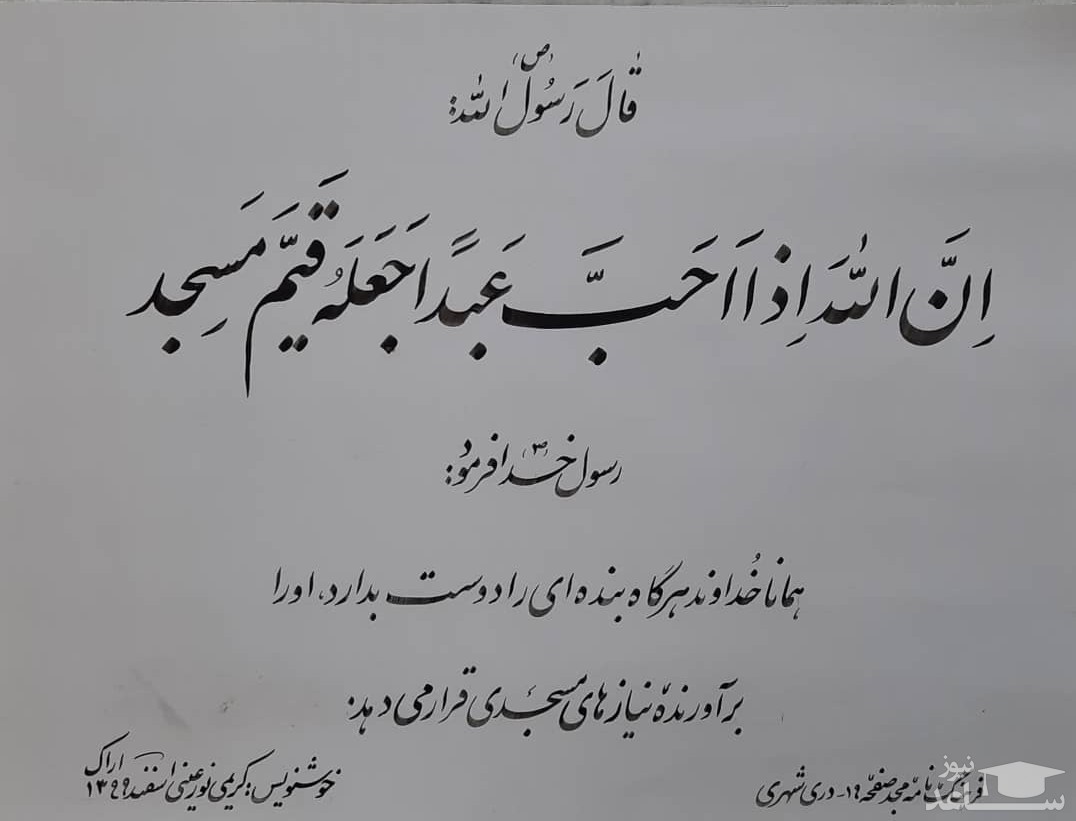 قَالَ رَسُولُ اللّٰه (ص):
اِنَّ اللّٰهَ اِذَا اَحَبَّ عَبدًا جَعَلَهُ قَیِّمَ مَسِجد
رسول خدا (ص) فرمود:
همانا خُداوند هرگاه بنده ای را دوست بدارد، او را
برآورنده نیازهای مسجدی قرار می دهد.
خوشنویس: کریمی نورعینی اسفند ۱۳۹۹ اراک
صفحه ۱۹ - ری شهری
نیوز